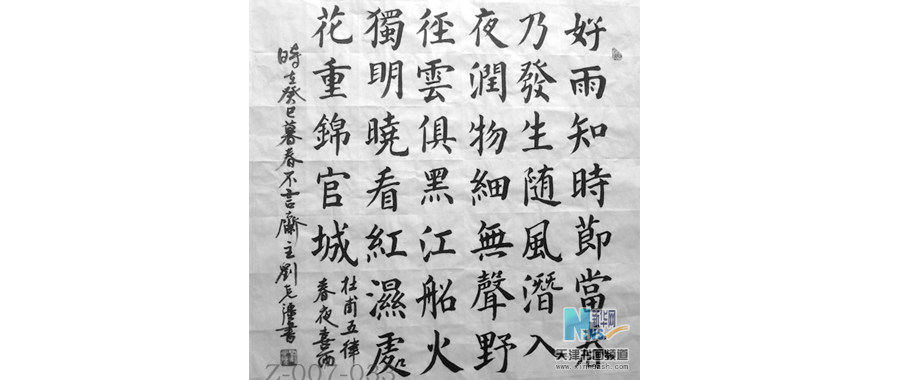 好雨知時節當春
乃發生随風潛入
夜潤物細無聲野
徑雲俱黑江船火
獨明曉看紅濕處
花重錦官城
杜甫五律
春夜喜雨
時在癸巳暮春不言齋主劉書
新华网
天津书画频道
Z-007-033